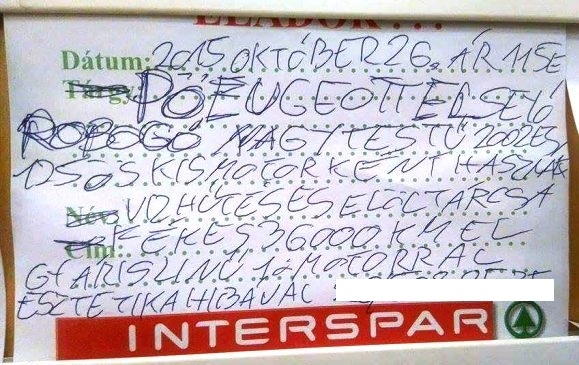 ELADÓK!!!
Dátum: 2015. OKTÓBER 26. ÁR 115E
Tárgy: PŐŐEUGEOTT ELSEJÓ
ROBOGÓ NAGYTESTŰ 2002ES
OS KISMOTORKÉNT HASZNÁ
Név: VIZHŰTÉSES ELŐLTÁRCSA
Cím: KÉKES 36000 KM EL
GYÁRISZINŰ MOTORRAL
ESZTÉTIKAHIBÁVAL
INTERSPAR